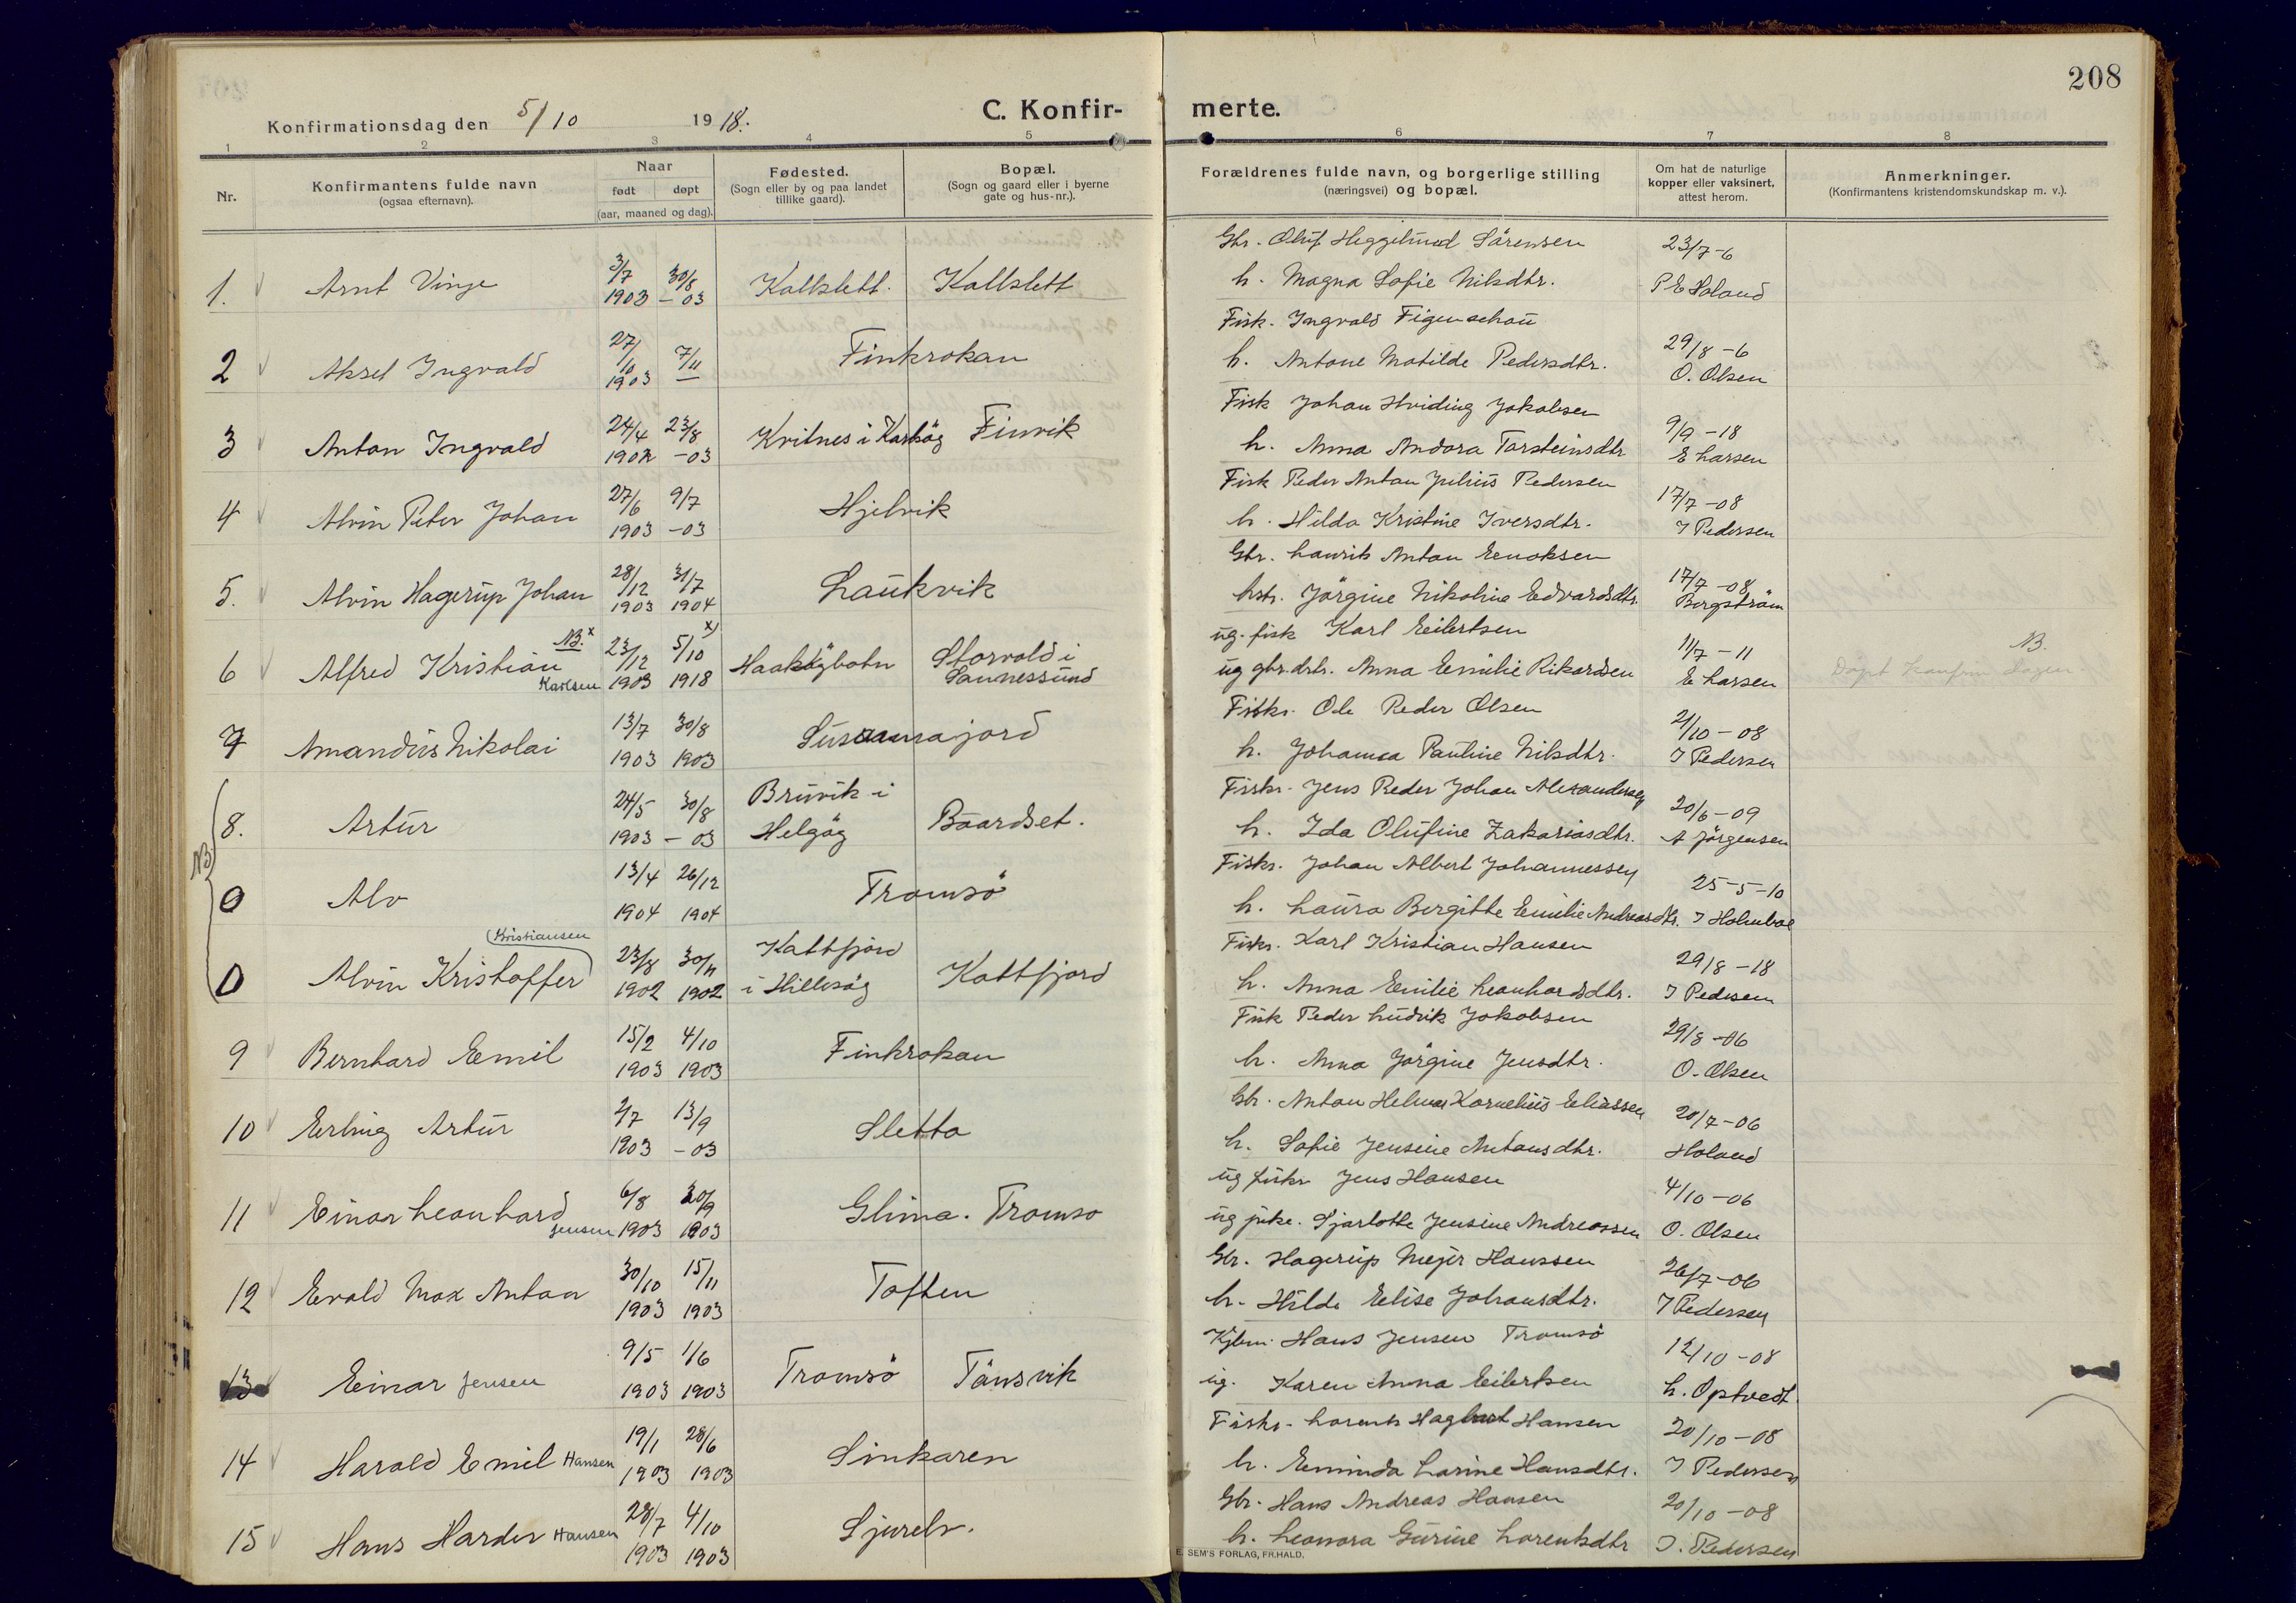 208
Konfirmationsdag den 5/10 1918.
C. Konfir-merte.
1 2 3 4 5 6 7 8
Nr.
Konfirmantens fulde navn
(ogsaa efternavn).
Naar
født døpt
(aar, maaned og dag).
Fødested.
(Sogn eller by og paa landet
tillike gaard).
Bopæl.
(Sogn og gaard eller i byerne
gate og hus-nr.).
Forældrenes fulde navn, og borgerlige stilling
(næringsvei) og bopæl.
Om hat de naturlige
kopper eller vaksinert,
attest herom.
Anmerkninger.
(Konfirmantens kristendomskundskap m. v.).
3/7 30/8 Gbr. Oluf Heggelund Sörensen 23/7-6
1. Arnt Vinje 1903 -03 Kallslett. Kallslett h. Magna Sofie Nilsdtr. P E Holand
27/10 7/11 Finkrokan Fisk. Ingvald Figenschou 29/8-6
2 Aksel Ingvald 1903 — h. Antone Matilde Pedersdtr. O. Olsen
24/4 23/8 Fisk Johan Hviding Jakobsen 9/9-18
3 Anton Ingvald 1902 -03 Kvitnes i Karlsög Finvik h. Anna Andora Torsteinsdtr E Larsen
27/6 9/7 Hjelvik Fisk Peder Anton Julius Pedersen 17/7-08
4 Alvin Peter Johan 1903 -03 h. Hilda Kristine Iversdtr. I Pedersen
28/12 31/7 Laukvik Gbr. Laurits Anton Enoksen 17/7-08
5. Alvin Hagerup Johan 1903 1904 hstr. Jörgine Nikoline Edvardsdtr. Bergström
NB.x 23/12 5/10 x) ug. fisk Karl Eilertsen 11/7-11 NB.
6 Alfred Kristian Karlsen 1903 1918 Storvold i Sannessund ug gbr.dtr. Anna Emilie Rikardsen E Larsen
13/7 30/8 Fiskr. Ole Peder Olsen 2/10-08
7 Amandus Nikolai 1903 1903 Susannajord h. Johanna Pauline Nilsdtr. I Pedersen
24/5 30/8 Bruvik i Fiskr. Jens Peder Johan Alexandersen 20/6-09
NB. 8. Artur 1903 -03 Helgög Baardset. h. Ida Olufine Zakariasdtr. A Jörgensen
13/4 26/12 Tromsö Fiskr. Johan Albert Johannessen 25-5-10
0 Alv 1904 1904 h. Laura Bergitte Emilie Andreasdtr. I Holmboe
Kristiansen 23/8 30/11 Kattfjord Fiskr. Karl Kristian Hansen 29/8-18
0 Alvin Kristoffer 1902 1902 i Hillesög Kattfjord h. Anna Emilie Leonhardsdtr. I Pedersen
15/2 4/10 Finkrokan Fisk Peder Ludvik Jakobsen 29/8-06
9 Bernhard Emil 1903 1903 h. Anna Jörgine Jensdtr. O. Olsen
2/7 13/9 Sletta Gbr. Anton Helmer Kornelius Eliassen 20/7-06
10 Erling Artur 1903 -03 h. Sofie Jensine Antonsdtr. Holand
6/8 20/9 Glima. Tromsö ug fiskr Jens Hansen 4/10-06
11 Einar Leonhard Jensen 1903 1903 ug pike. Sjarlotte Jensine Andreassen O. Olsen
30/10 15/11 Toften Gbr. Hagerup Mejer Hanssen 26/7-06
12 Evald Max Anton 1903 1903 h. Hilda Elise Johansdtr. I Pedersen
9/5 1/6 Kjbm. Hans Jensen Tromsö 12/10-08
13 Einar Jensen 1903 1903 Tromsö Tönsvik ug. Karen Anna Eilertsen h. Optvedt.
19/1 28/6 Sinkaren Fiskr. Lorents Hagbart Hansen 20/10-08
14 Harald Emil Hansen 1903 1903 h. Eminda Larine Hansdtr. I Pedersen
28/7 4/10 Sjurelv. Gbr. Hans Andreas Hansen 20/10-08
15 Hans Harder Hansen 1903 1903 h. Leonora Gurine Lorentsdtr I. Pedersen
E. SEM'S FORLAG, FR.HALD.